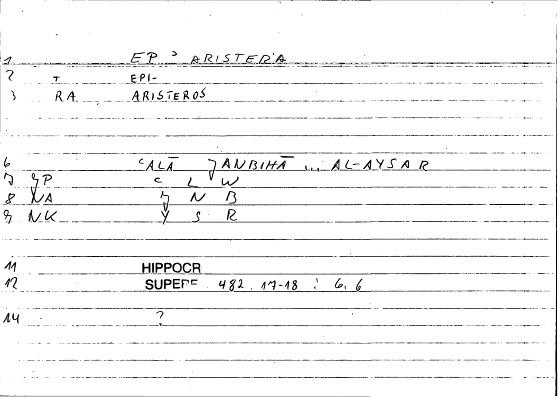 1 EP ᾽ ARISTERA
2 T EPI-
3 RA ARISTEROS
6 ʿALĀ ǦANBIHĀ ... AL-AYSAR
7 ǦP ʿ L W
8 NA Ǧ N B
9 NK Y S R
11 HIPPOCR
12 SUPERF 482. 17-18 : 6,6
14 ?